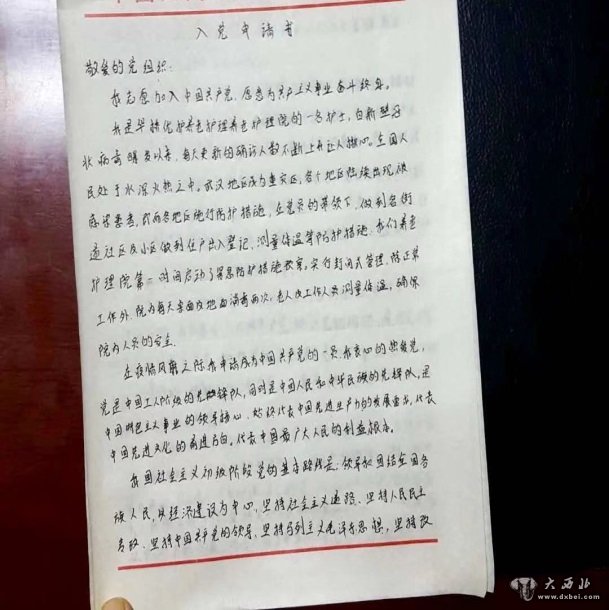 入党申请书
敬爱的党组织：
我志愿加入中国共产党，愿意为共产主义事业奋斗终身。
我是 养老护理院的一名护士，自新型冠
状病毒爆发以来，每天更新的确诊人数不断上升让人揪心。全国人
民处于水深火热之中。武汉地区成为重灾区，各个地区陆续出现被
感染患者，政府各地区施行防护措施，在党员的带领下，做到各街
道社区及小区做到住户出入登记，测量体温等防护措施，我们养老
护理院第一时间启动了紧急防护措施预案。实行封闭式管理，除正常
工作外，院内每天桌面及地面消毒两次，老人及工作人员测量体温，确保
院内人员的安全。
在疫情风霜之际我申请成为中国共产党的一员，我衷心的热爱党，
党是中国工人阶级的先锋队，同时是中国人民和中华民族的先锋队，是
中国特色主义事业的领导核心，始终代表中国先进生产力的发展要求，代表
中国先进文化的前进方向。代表中国最广大人民的利益根本。
我国社会主义初级阶段党的基本路线是：领导和团结全国各
族人民，以经济建设为中心，坚持社会主义道路、坚持人民民主
专政、坚持中国共产党的领导、坚持马列主义毛泽东思想，坚持改
大西北
www.dxbei.com